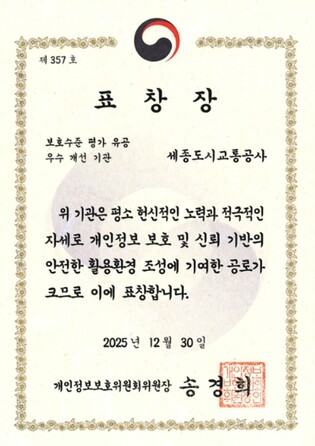 제 357 호
표 창 장
보호수준 평가 유공
우수 개선 기관 세종도시교통공사
위 기관은 평소 헌신적인 노력과 적극적인
자세로 개인정보 보호 및 신뢰 기반의
안전한 활용환경 조성에 기여한 공로가
크므로 이에 표창합니다.
2025 년 12 월 30 일
개인정보보호위원회위원장 송 경 희